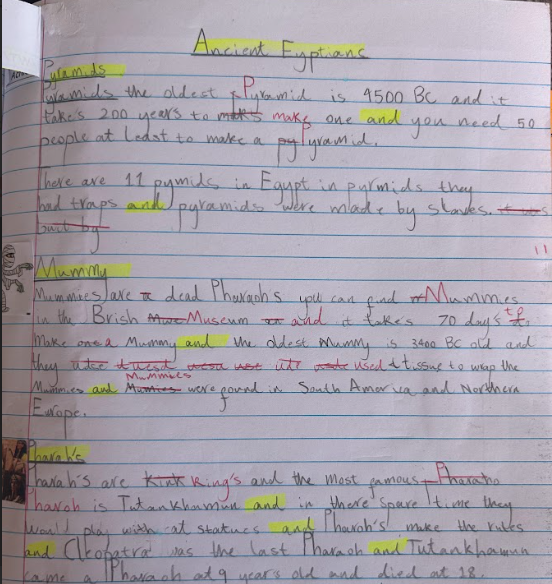 Ancient Eyptians
Pyramids
Pyramids the oldest Pyramid is 4500 BC and it
take's 200 years to make one and you need 50
people at least to make a Pyramid.
There are 11 pymids in Egypt in pyrmids they
had traps and pyramids were made by slaves.
built by
11
Mummy
Mummies are dead Pharaoh's you can find Mummies
in the Brish Museum and it take's 70 day's to
Make a Mummy and the oldest Mummy is 3400 BC old and
they used tissue to wrap the
Mummies
Mummies and were found in South America and Northern
Europe.
Pharah's
Pharah's are King's and the most famous
Pharoh is Tutankhamun and in there spare time they
would play with statues and Pharoh's make the rules
and Cleopatra was the last Pharaoh and Tutankhamun
came a Pharaoh at 9 year's old and died at 18.